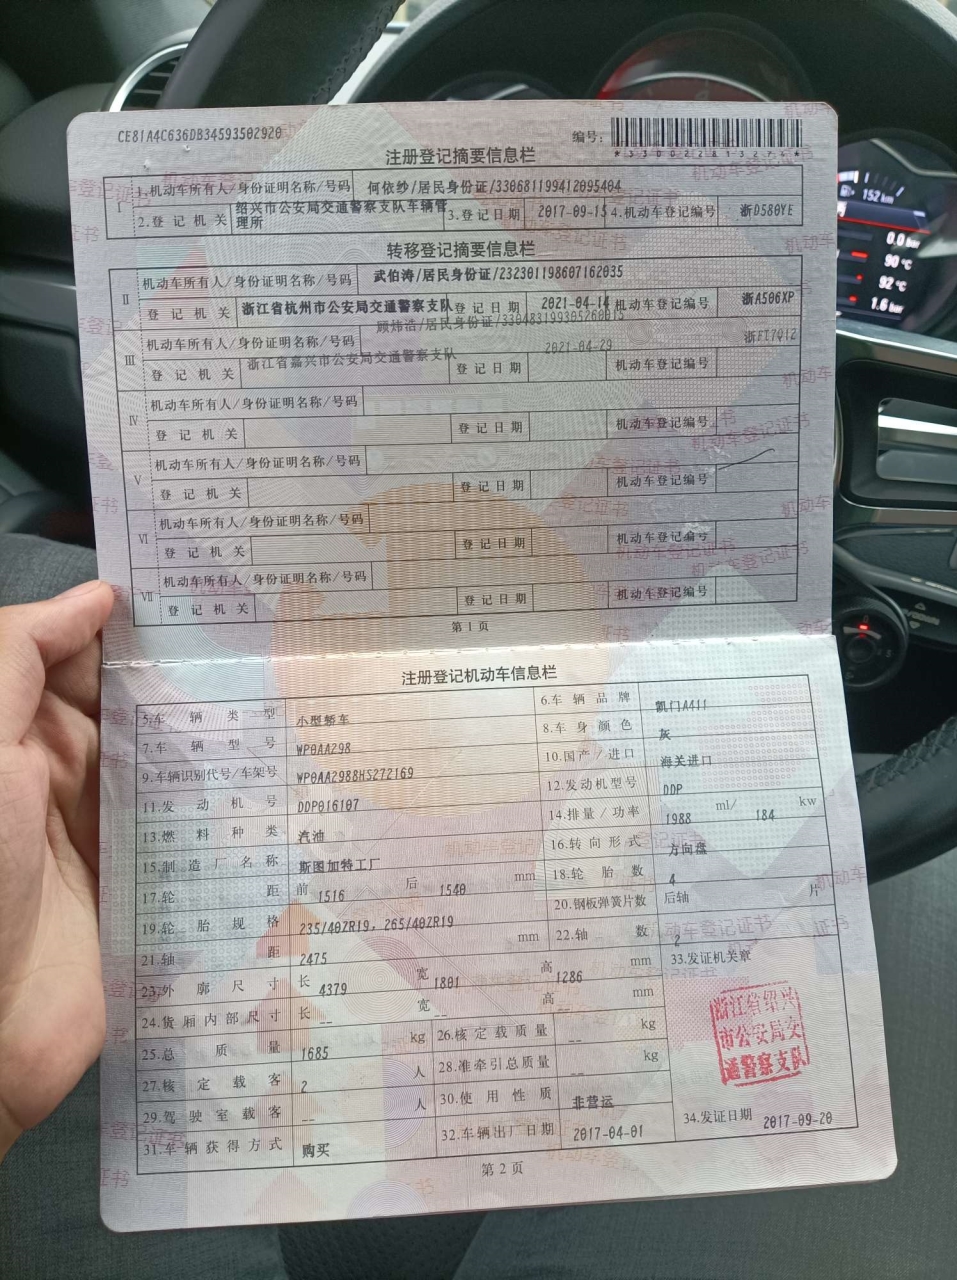 CE81A4C636DB34593502920
编号:
*330022813274*
注册登记摘要信息栏
I
1.机动车所有人/身份证明名称/号码 何依纱/居民身份证/330681199412095404
2.登记机关 绍兴市公安局交通警察支队车辆管理所 3.登记日期 2017-09-15 4.机动车登记编号 浙D580YE
转移登记摘要信息栏
II
机动车所有人/身份证明名称/号码 武伯涛/居民身份证/232301198607162035
登记机关 浙江省杭州市公安局交通警察支队 登记日期 2021-04-14 机动车登记编号 浙A506XP
III
机动车所有人/身份证明名称/号码 顾炜浩/居民身份证/330483199305260015
登记机关 浙江省嘉兴市公安局交通警察支队 登记日期 2021-04-29 机动车登记编号
IV
机动车所有人/身份证明名称/号码
登记机关 登记日期 机动车登记编号
V
机动车所有人/身份证明名称/号码
登记机关 登记日期 机动车登记编号
VI
机动车所有人/身份证明名称/号码
登记机关 登记日期 机动车登记编号
VII
机动车所有人/身份证明名称/号码
登记机关 登记日期 机动车登记编号
第1页
注册登记机动车信息栏
5.车辆类型 小型轿车 6.车辆品牌 凯门A411
7.车辆型号 WP0AA298 8.车身颜色 灰
9.车辆识别代号/车架号 WP0AA2988HS272169 10.国产/进口 海关进口
11.发动机号 DDP016107 12.发动机型号 DDP
13.燃料种类 汽油 14.排量/功率 1988 ml/ 184 kw
15.制造厂名称 斯图加特工厂 16.转向形式 方向盘
17.轮距 前 1516 后 1540 mm 18.轮胎数 4
19.轮胎规格 235/40ZR19, 265/40ZR19 20.钢板弹簧片数 后轴 片
21.轴距 2475 mm 22.轴数 2
23.外廓尺寸 长 4379 宽 1801 高 1286 mm 33.发证机关章
24.货厢内部尺寸 长 -- 宽 -- 高 -- mm
浙江省绍兴
市公安局交
通警察支队
25.总质量 1685 kg 26.核定载质量 -- kg
27.核定载客 2 人 28.准牵引总质量 -- kg
29.驾驶室载客 -- 人 30.使用性质 非营运
31.车辆获得方式 购买 32.车辆出厂日期 2017-04-01 34.发证日期 2017-09-20
第2页
152 km
0.0 bar
90 °C
92 °C
1.6 bar